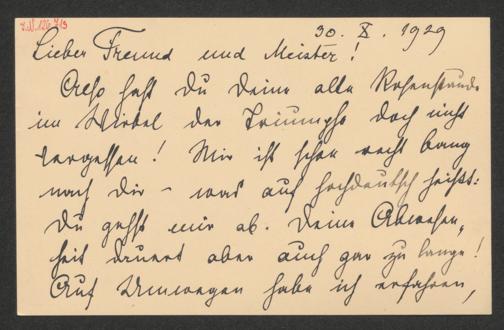 I.N. 126.713
30. X. 1929
Lieber Freund und Meister!
Also hast Du Deine alte
im Wirbel der Triumphe doch nicht
vergessen! Mir ist schon recht bang
nach Dir – was auf hochdeutsch heisst:
Du gehst mir ab. Deine Abwesen„
heit dauert aber auch gar zu lange!
Auf Umwegen habe ich erfahren,